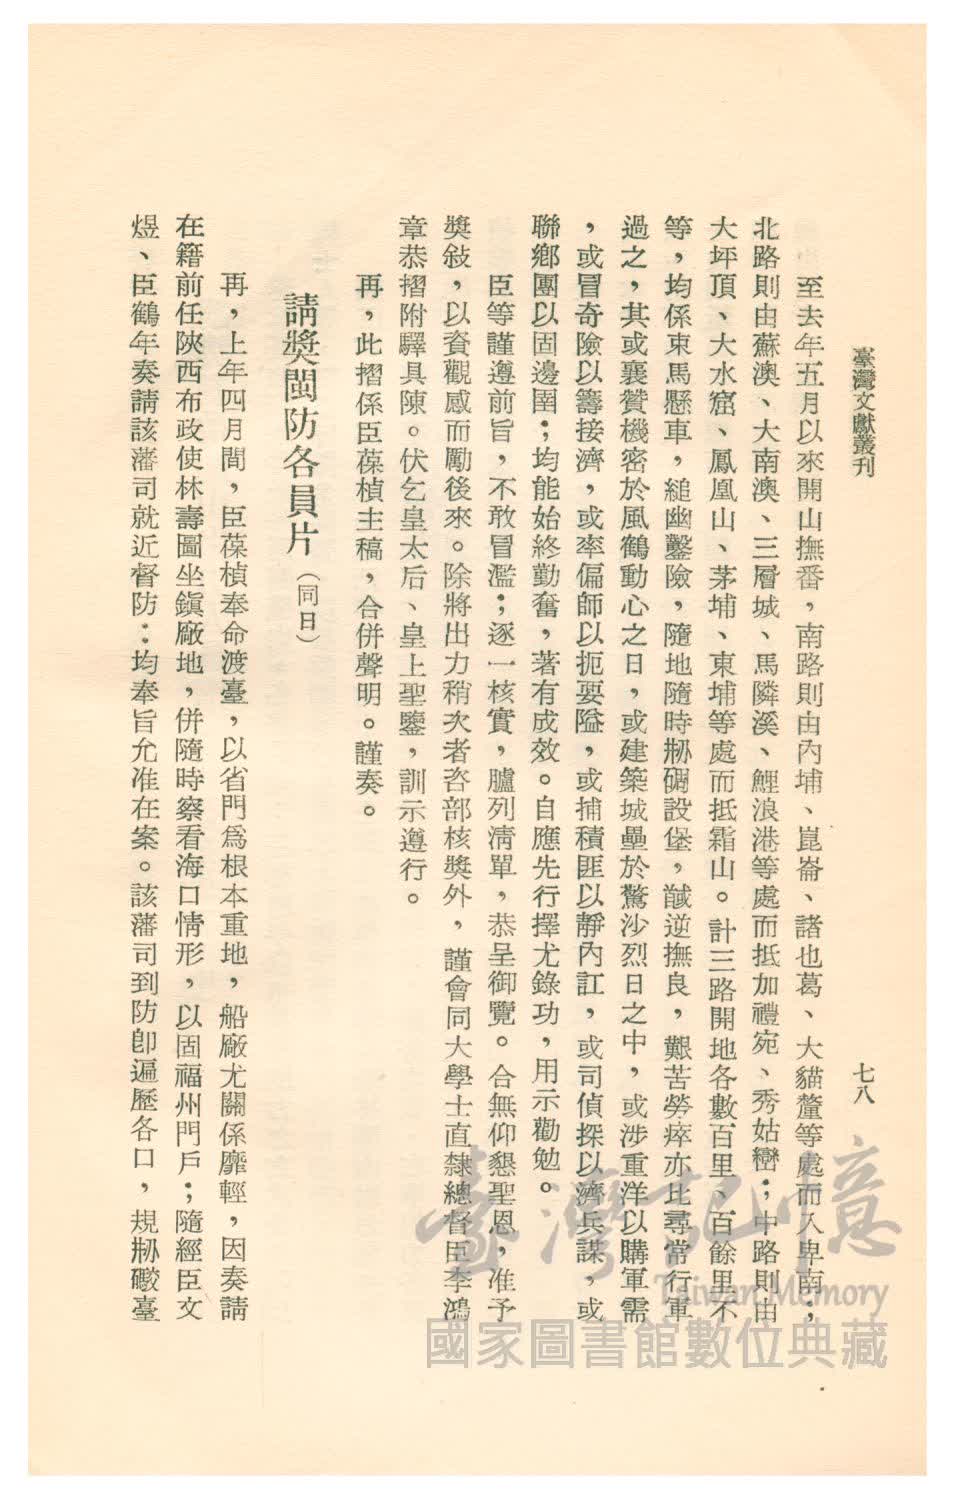 臺灣文獻叢刊
七八
至去年五月以來開山撫番，南路則由內埔、崑崙、諸也葛、大貓釐等處而入卑南；
北路則由蘇澳、大南澳、三層城、馬隣溪、鯉浪港等處而抵加禮宛、秀姑巒；中路則由
大坪頂、大水窟、鳳凰山、茅埔、東埔等處而抵霜山。計三路開地各數百里、百餘里不
等，均係束馬懸車，縋幽鑿險，隨地隨時剏碉設堡，馘逆撫良，艱苦勞瘁亦比尋常行軍
過之，其或襄贊機密於風鶴動心之日，或建築城壘於驚沙烈日之中，或涉重洋以購軍需
，或冒奇險以籌接濟，或率偏師以扼要隘，或捕積匪以靜內訌，或司偵探以濟兵謀，或
聯鄉團以固邊圉；均能始終勤奮，著有成效。自應先行擇尤錄功，用示勸勉。
臣等謹遵前旨，不敢冒濫；逐一核實，臚列清單，恭呈御覽。合無仰懇聖恩，准予
獎敍，以資觀感而勵後來。除將出力稍次者咨部核獎外，謹會同大學士直隸總督臣李鴻
章恭摺附驛具陳。伏乞皇太后、皇上聖鑒，訓示遵行。
再，此摺係臣葆楨主稿，合併聲明。謹奏。
請獎閩防各員片（同日）
再，上年四月間，臣葆楨奉命渡臺，以省門爲根本重地，船廠尤關係靡輕，因奏請
在籍前任陝西布政使林壽圖坐鎭廠地，併隨時察看海口情形，以固福州門戶；隨經臣文
煜、臣鶴年奏請該藩司就近督防：均奉旨允准在案。該藩司到防卽遍歷各口，規剏礮臺
臺灣記憶
Taiwan Memory
國家圖書館數位典藏